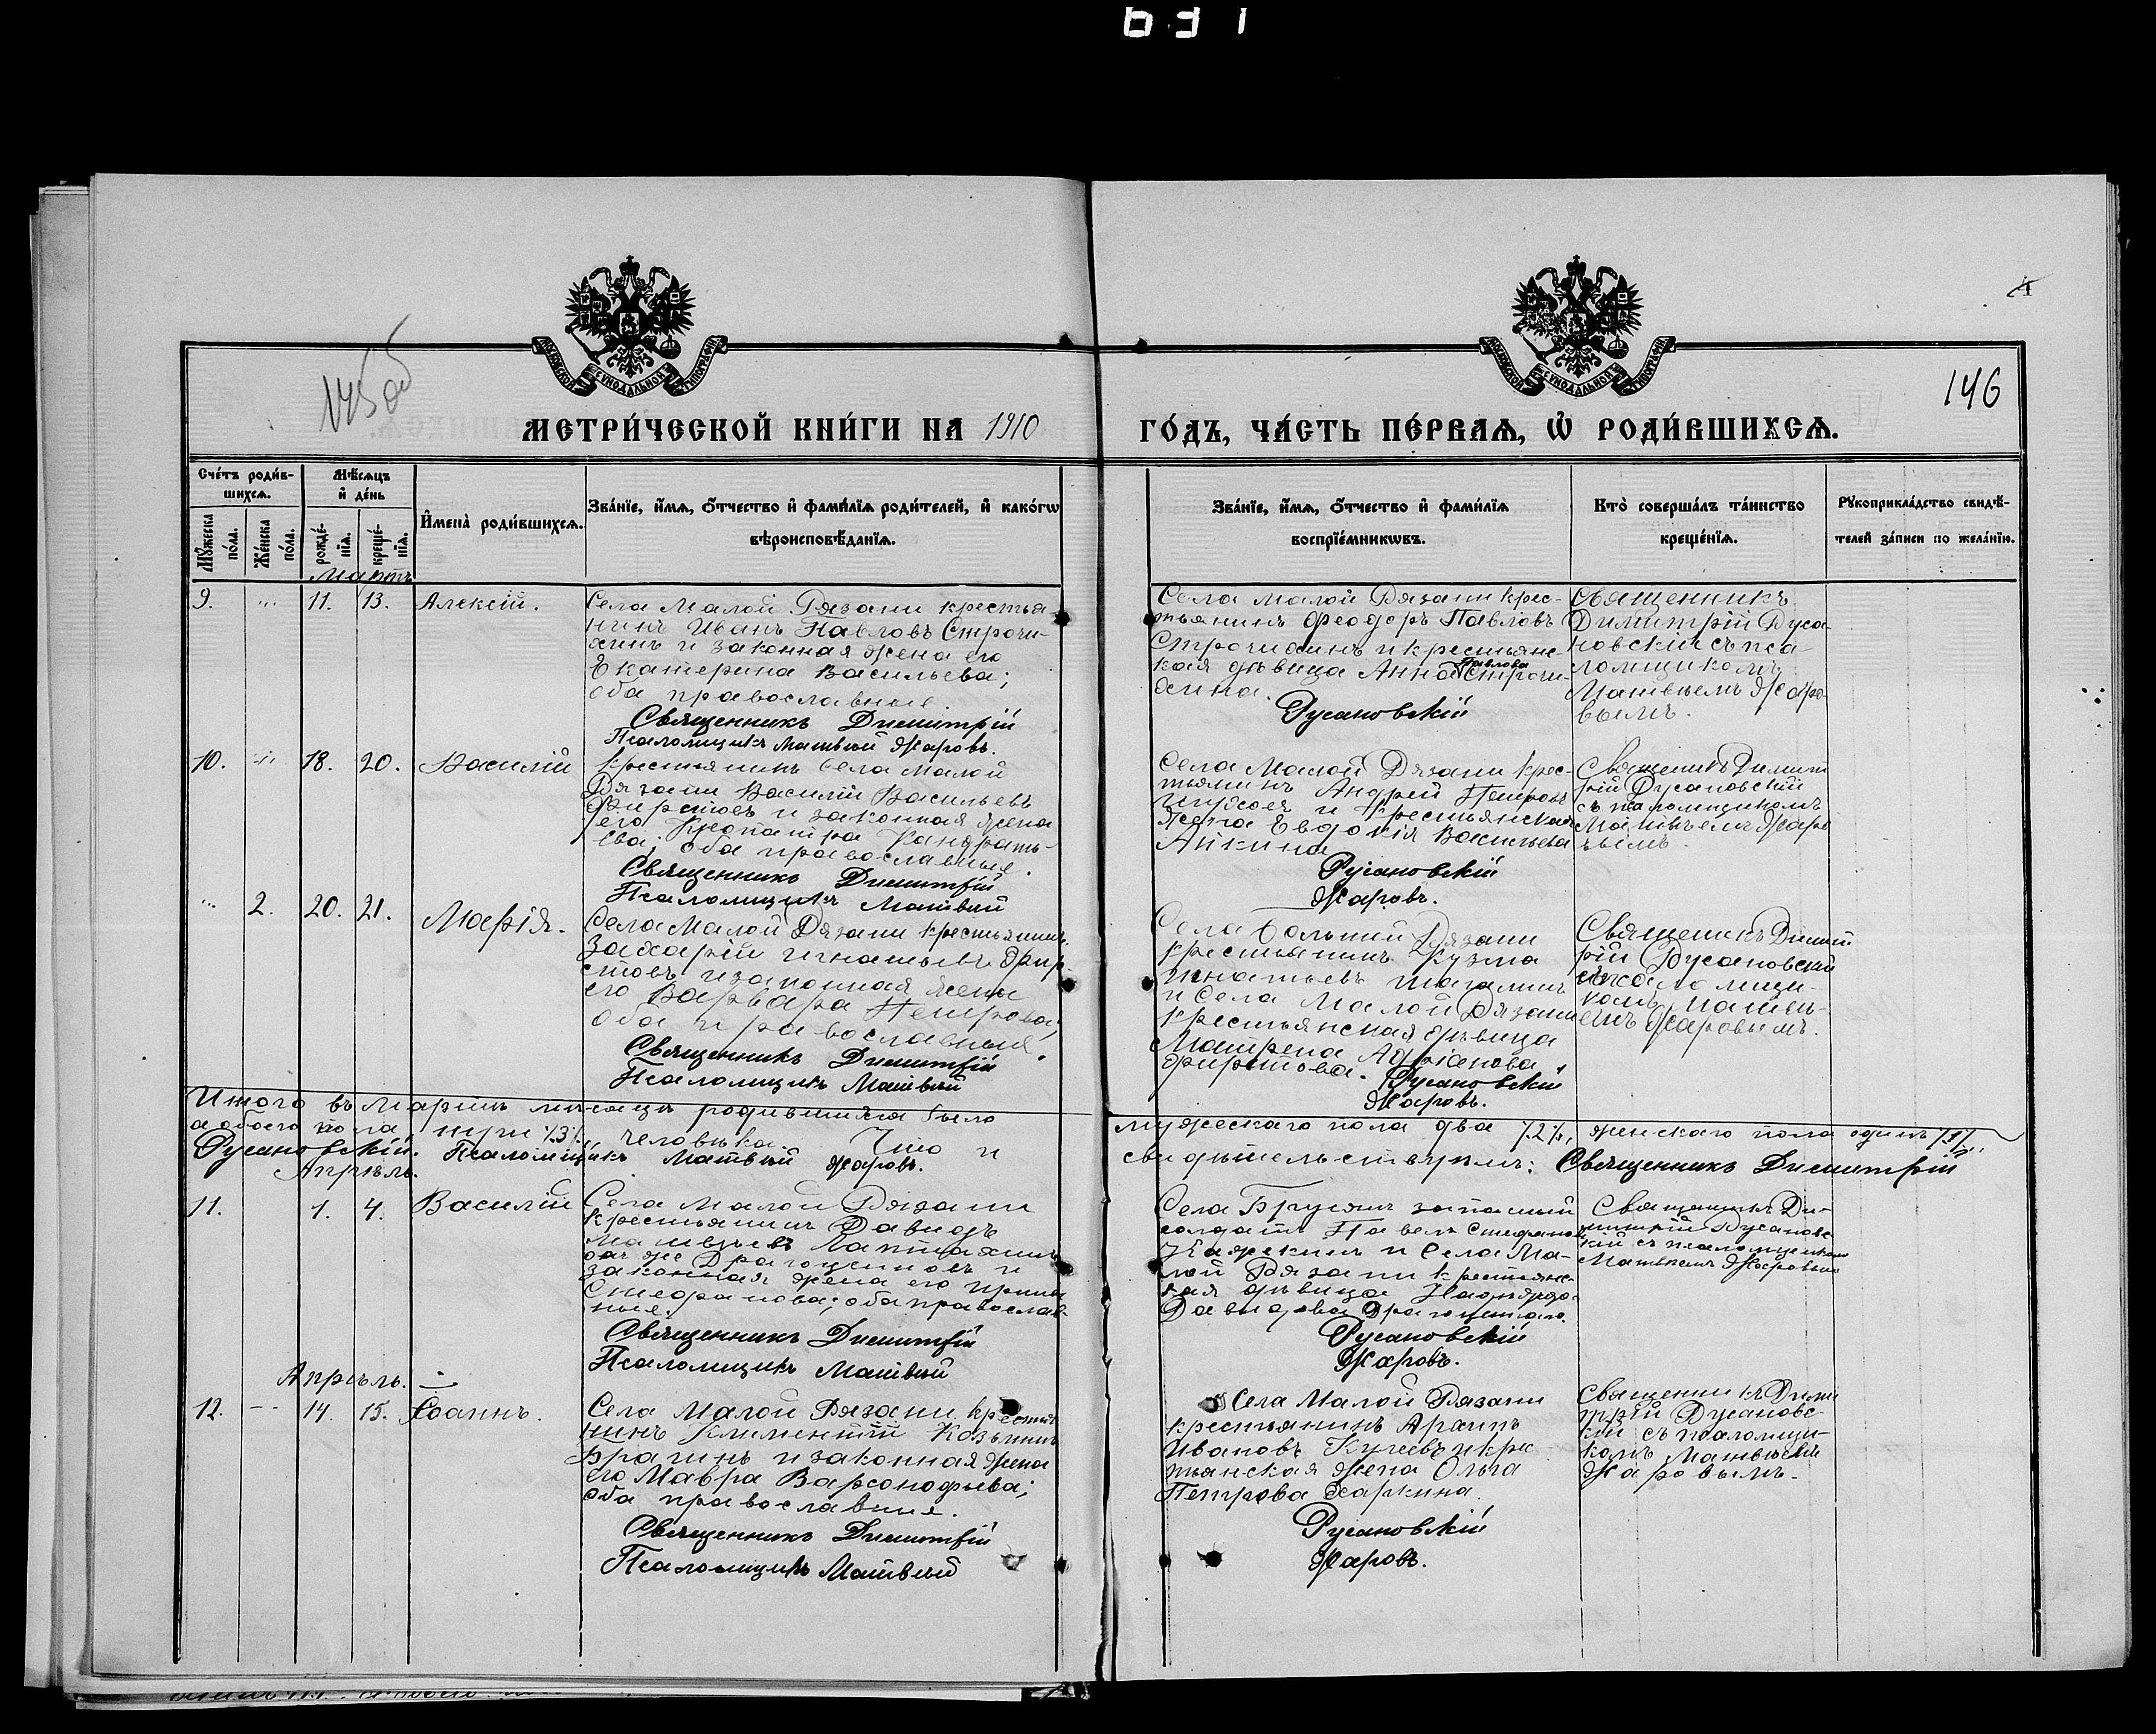 631
МОСКОВСКОЙ СѴНОДАЛЬНОЙ ТИПОГРАФІИ
МОСКОВСКОЙ СѴНОДАЛЬНОЙ ТИПОГРАФІИ
146
МЕТРИ́ЧЕСКОЙ КНИ́ГИ НА 1910
ГО́ДЪ, ЧА́СТЬ ПЕ́РВАѦ, Ѡ҆ РОДИ́ВШИХСѦ.
Сче́тъ роди́в-
шихсѧ.
Мѣ́сѧцъ
и҆ де́нь
Мꙋ́жеска
по́ла.
Же́нска
по́ла.
рожде́-
нїѧ.
креще́-
нїѧ.
И҆мена̀ роди́вшихсѧ.
Зва́нїе, и҆́мѧ, ѻ҆́тчество и҆ фами́лїѧ роди́телей, и҆ како́гѡ
вѣроисповѣ́данїѧ.
Зва́нїе, и҆́мѧ, ѻ҆́тчество и҆ фами́лїѧ
воспрїе́мникѡвъ.
Кто̀ соверша́лъ та́инство
креще́нїѧ.
Рꙋкоприкла́дство свидѣ́-
телей за́писи по жела́нїю.
Мартъ
9. 11. 13. Алексій.
Села Малой Рязани крестья-
нинъ Иванъ Павловъ Строчи-
хинъ и законная жена его
Екатерина Васильева;
оба православные.
Священникъ Димитрій
Псаломщикъ Матвѣй Жаровъ.
Села Малой Рязани крес-
тьянинъ Феодоръ Павловъ
Строчихинъ и крестьянс-
кая дѣвица Анна Павлова Строчи-
хина.
Русановскій
Священникъ
Димитрій Руса-
новскій съ пса-
ломщикомъ
Матвѣемъ Жаро-
вымъ.
10. 18. 20. Василій
Крестьянинъ села Малой
Рязани Василій Васильевъ
Фирстовъ и законная жена
его Клеопатра Кандрать-
ева; оба православные.
Священникъ Димитрій
Псаломщикъ Матвѣй
Села Малой Рязани крес-
тьянинъ Андрей Петровъ
и крестьянская
жена Евдокія Васильева
Айкина
Русановскій
Жаровъ.
Священникъ Димит
рій Русановскій
съ псаломщикомъ
Матвѣемъ Жаро
вымъ.
2. 20. 21. Марія.
Села Малой Рязани крестьянинъ
Захарій Игнатьевъ Фир-
стовъ и законная жена
его Варвара Петрова;
оба православные.
Священникъ Димитрій
Псаломщикъ Матвѣй
Села Большой Рязани
крестьянинъ Кузма
Игнатьевъ
и села Малой Рязани
крестьянская дѣвица
Матрена Адріанова
Фирстова.
Русановскій
Жаровъ.
Священникъ Димит
рій Русановскій
съ псаломщи-
комъ Матвѣ-
емъ Жаровымъ.
Итого въ Мартѣ мѣсяцѣ родившихся было мужескаго пола два /2/, женскаго пола одинъ /1/,
а обоего пола три /3/ человѣка. Что и свидѣтельствуемъ: Священникъ Димитрій
Русановскій. Псаломщикъ Матвѣй Жаровъ.
Апрѣль.
11. 1. 4. Василій
Села Малой Рязани
крестьянинъ Давидъ
Матвѣевъ
онъ же Драгоценовъ и
законная жена его Ирина
Стефанова; оба православ
ные.
Священникъ Димитрій
Псаломщикъ Матвѣй
Села Брусянъ запасный
солдатъ Павелъ Стефановъ
и села Ма-
лой Рязани крестьянс-
кая дѣвица
Давидова
Русановскій
Жаровъ.
Священникъ Ди-
митрій Русановс-
кій съ псаломщикомъ
Матвѣемъ Жаровымъ
Апрѣль.
12. 14. 15. Іоаннъ.
Села Малой Рязани кресть
нинъ Климентій Козьминъ
Брагинъ и законная жена
его Мавра Варсонофьева;
оба православные.
Священникъ Димитрій
Псаломщикъ Матвѣй
Села Малой Рязани
крестьянинъ Архипъ
Ивановъ и крес-
тьянская жена Ольга
Петрова Харкина.
Русановскій
Жаровъ.
Священникъ Дими
трій Русановс-
кій съ псаломщи-
комъ Матвѣемъ
Жаровымъ.